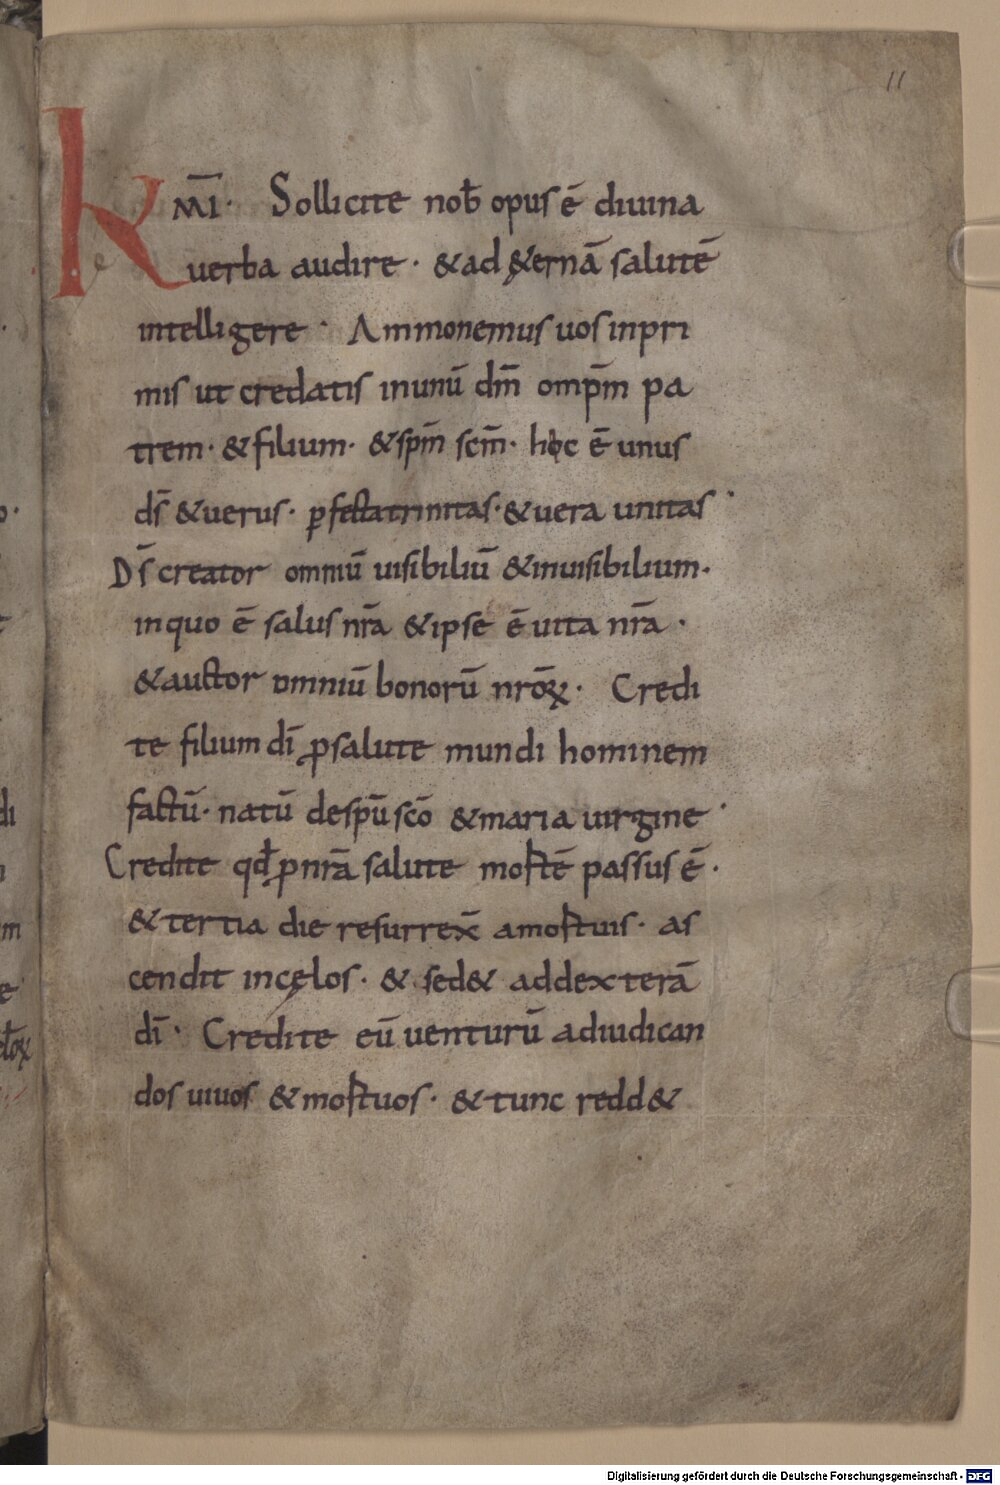 11
Km̄i· Sollicite nob̄ opus ē diuina
uerba audire · & ad &ernā salutē
intelligere · Ammonemus uos inpri
mis ut credatis inunū dm̄ omp̄m pa
trem· & filium· & spm̄ scm̄· hoc ē unus
ds̄ & uerus· ꝑfecta trinitas· & uera unitas·
Ds̄ creator omniū uisibiliū & inuisibilium·
inquo ē salus nr̄a & ipse ē uita nr̄a ·
& auctor omniū bonorū nrōꝝ· Credi
te filium dī ꝓsalute mundi hominem
factū· natū despū scō & maria uirgine·
Credite qđ ꝓnr̄a salute mortē passus ē·
& tertia die resurrex̄ amortuis· as
cendit incęlos· & sed& addexterā
dī· Credite eū uenturū adiudican
dos uiuos & mortuos· & tunc redd&
Digitalisierung gefördert durch die Deutsche Forschungsgemeinschaft - DFG